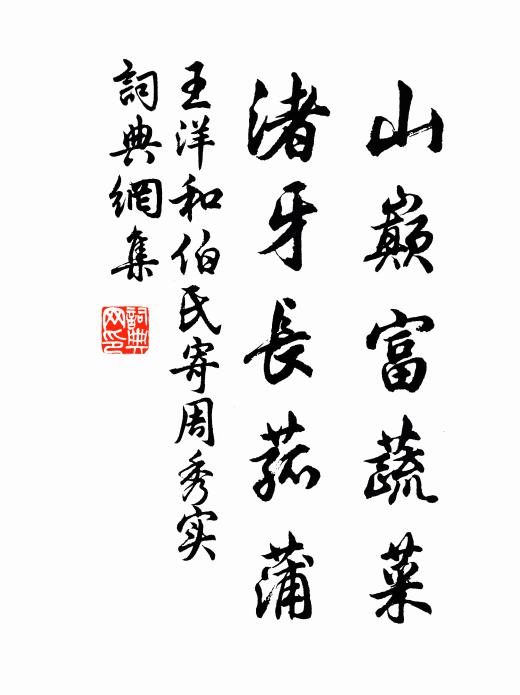 山巔富蔬菜
渚牙長菰蒲
王洋和伯氏寄周秀实
詞典網集
詞典
网印